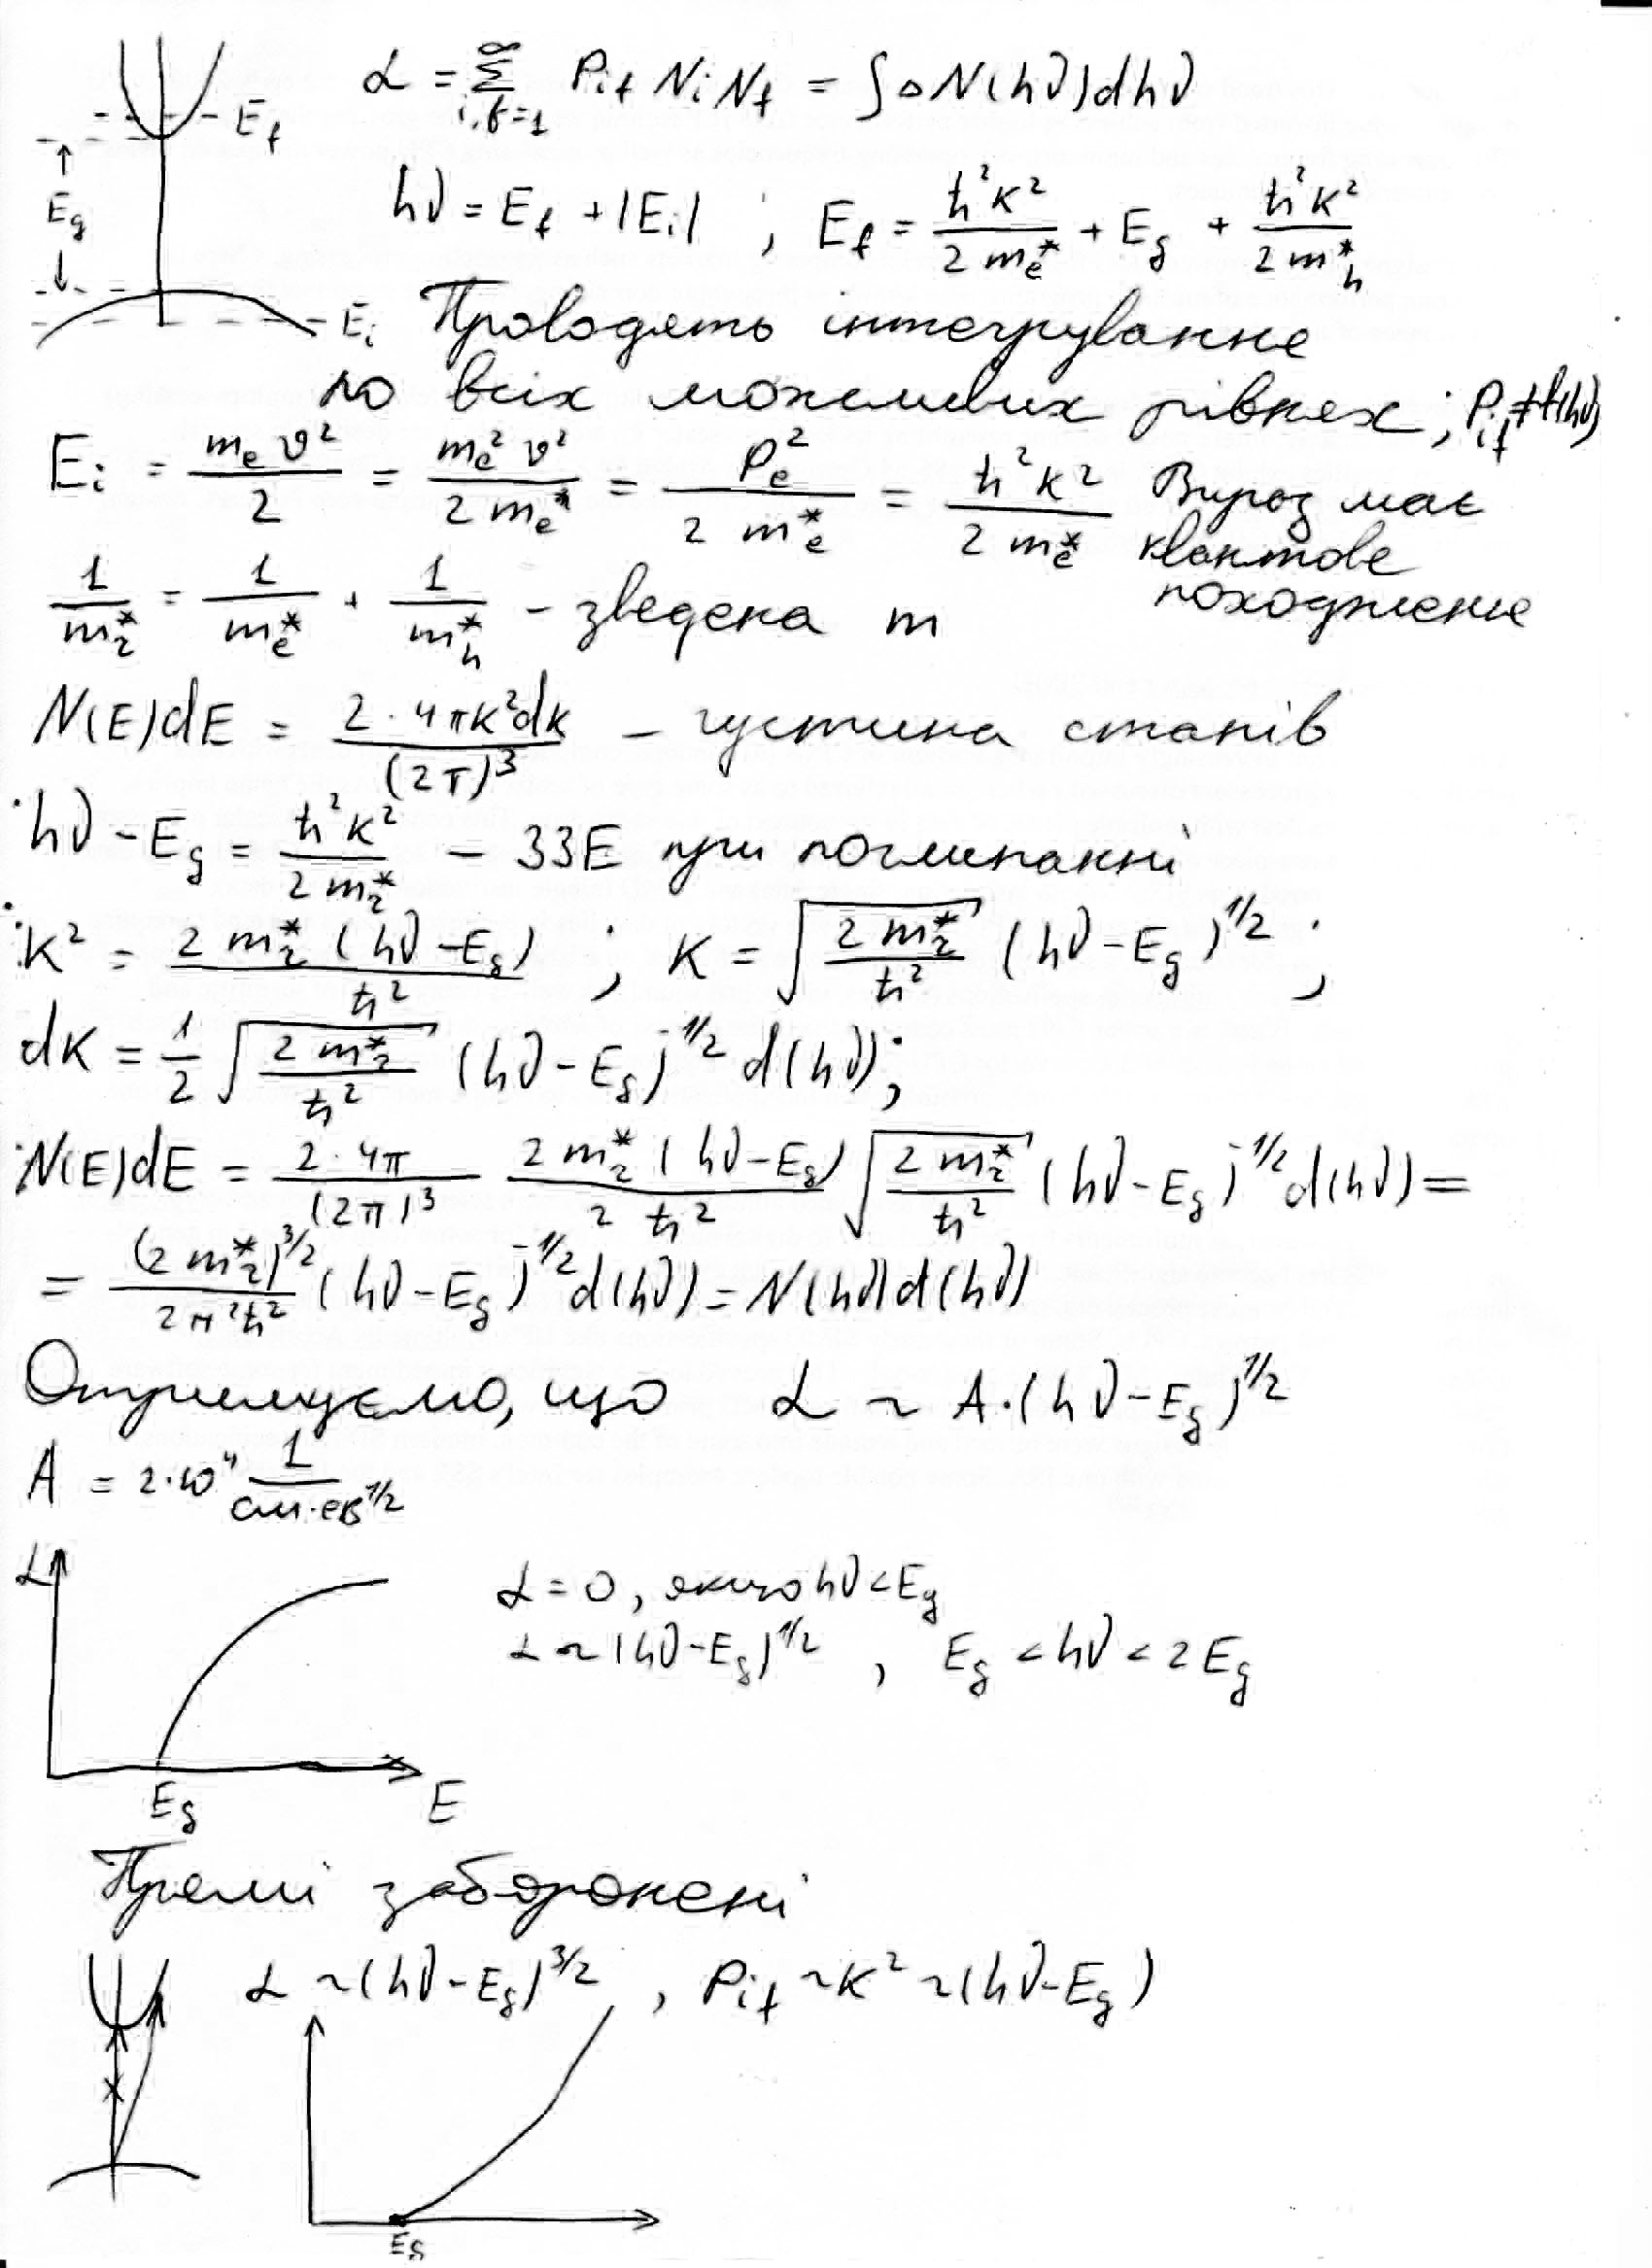 α = Σ_{i,f=1}^{∞} P_{if} N_i N_f = ∫ΔN(hν)dhν
E_f
hν = E_f + |E_i| ; E_f = ħ²k²/2m_e* + E_g + ħ²k²/2m_h*
E_g
E_i Проводять інтегрування
по всіх можливих рівнях ; P_{if} ≠ f(hν)
E_i = m_e v²/2 = m_e² v²/2m_e* = P_e²/2m_e* = ħ²k²/2m_e* Вираз має
квантове
походження
1/m_r* = 1/m_e* + 1/m_h* – зведена m
N(E)dE = 2·4πk²dk/(2π)³ – густина станів
hν – E_g = ħ²k²/2m_r* – ЗЗЕ при поглинанні
k² = 2m_r*(hν–E_g)/ħ² ; k = √(2m_r*/ħ²) (hν–E_g)^{1/2} ;
dk = 1/2 √(2m_r*/ħ²) (hν–E_g)^{-1/2} d(hν);
N(E)dE = 2·4π/(2π)³ 2m_r*(hν–E_g)/2ħ² √(2m_r*/ħ²) (hν–E_g)^{-1/2} d(hν) =
= (2m_r*)^{3/2}/2π²ħ² (hν–E_g)^{-1/2} d(hν) = N(hν)d(hν)
Отримуємо, що α ~ A·(hν–E_g)^{1/2}
A = 2·10⁴ 1/см·еВ^{1/2}
α
α = 0, якщо hν < E_g
α ~ (hν–E_g)^{1/2} , E_g < hν < 2E_g
E_g E
Прямі заборонені
α ~ (hν–E_g)^{3/2} , P_{if} ~ k² ~ (hν–E_g)
E_g